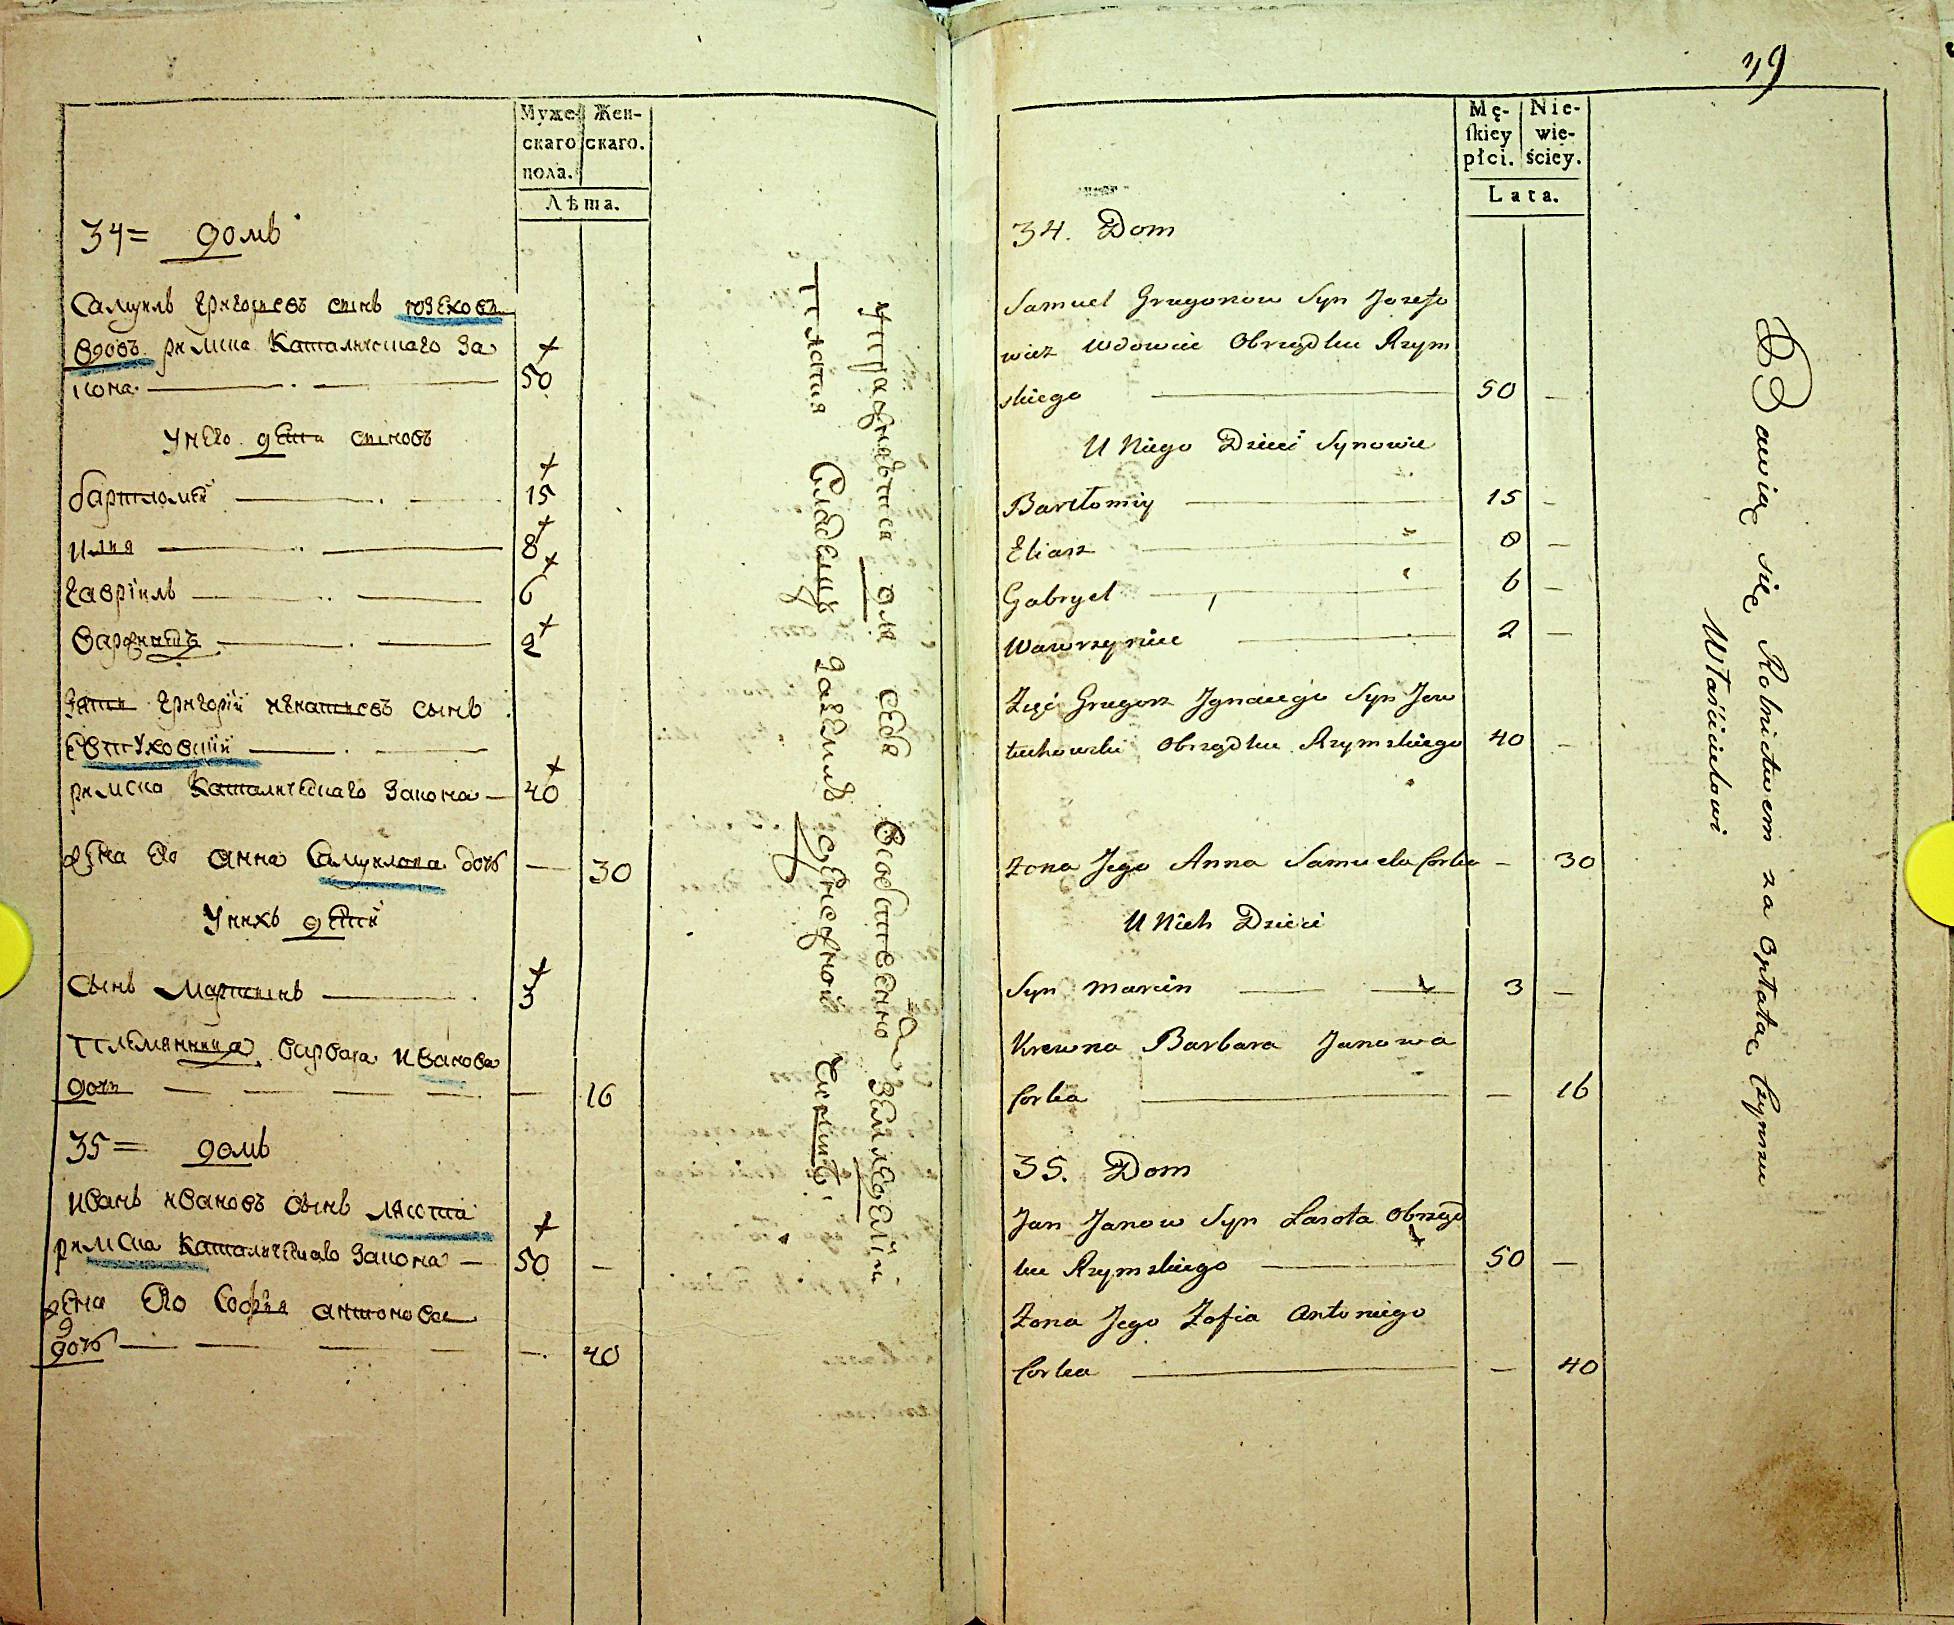 Муже-
скаго
пола.
Жен-
скаго.
Лѣта.
34= домъ
Самуиль Григорьевъ сынъ юзеховъ
вдовъ римска Каталическаго За
кона. 50
У него дѣти сыновъ
бартломѣй 15
илия 8
Гавріиль 6
2
Зять Григорій игнатьевъ сынъ
Евтуховскій
римска Каталическаго Закона 40
жена его анна Самуилова дочь — 30
У нихъ дѣтѣй
сынъ Мартинъ 3
Племянница варвара иванова
дочь — 16
35= домъ
иванъ ивановъ сынъ лясота
римска Каталическаго Закона — 50 —
жена его Софья антонова
дочь — 40
Упражняются для себя земледеліи
платия владелцу чиншъ
49
Mę-
skiey
płci.
Nie-
wie-
ściey.
Lata.
34. Dom
Samuel Gregorow Syn Jozefo
wicz Wdowiec Obrządku Rzym
skiego 50 —
U Niego Dzieci Synowie
Bartłomiy 15 —
Eliasz 8 —
Gabryel 6 —
Wawrzyniec 2 —
Zięć Gregorz Jgnacego Syn Jew
tuchowski Obrządku Rzymskiego 40 —
Zona Jego Anna Samuela Corka — 30
U Nich Dzieci
Syn Marcin 3 —
Krewna Barbara Janowa
Corka — 16
35. Dom
Jan Janow Syn Lasota Obrząd
ku Rzymskiego 50 —
Zona Jego Zofia Antoniego
Corka — 40
Bawią się Rolnictwem za Opłatac Czynszu
Właścicielowi